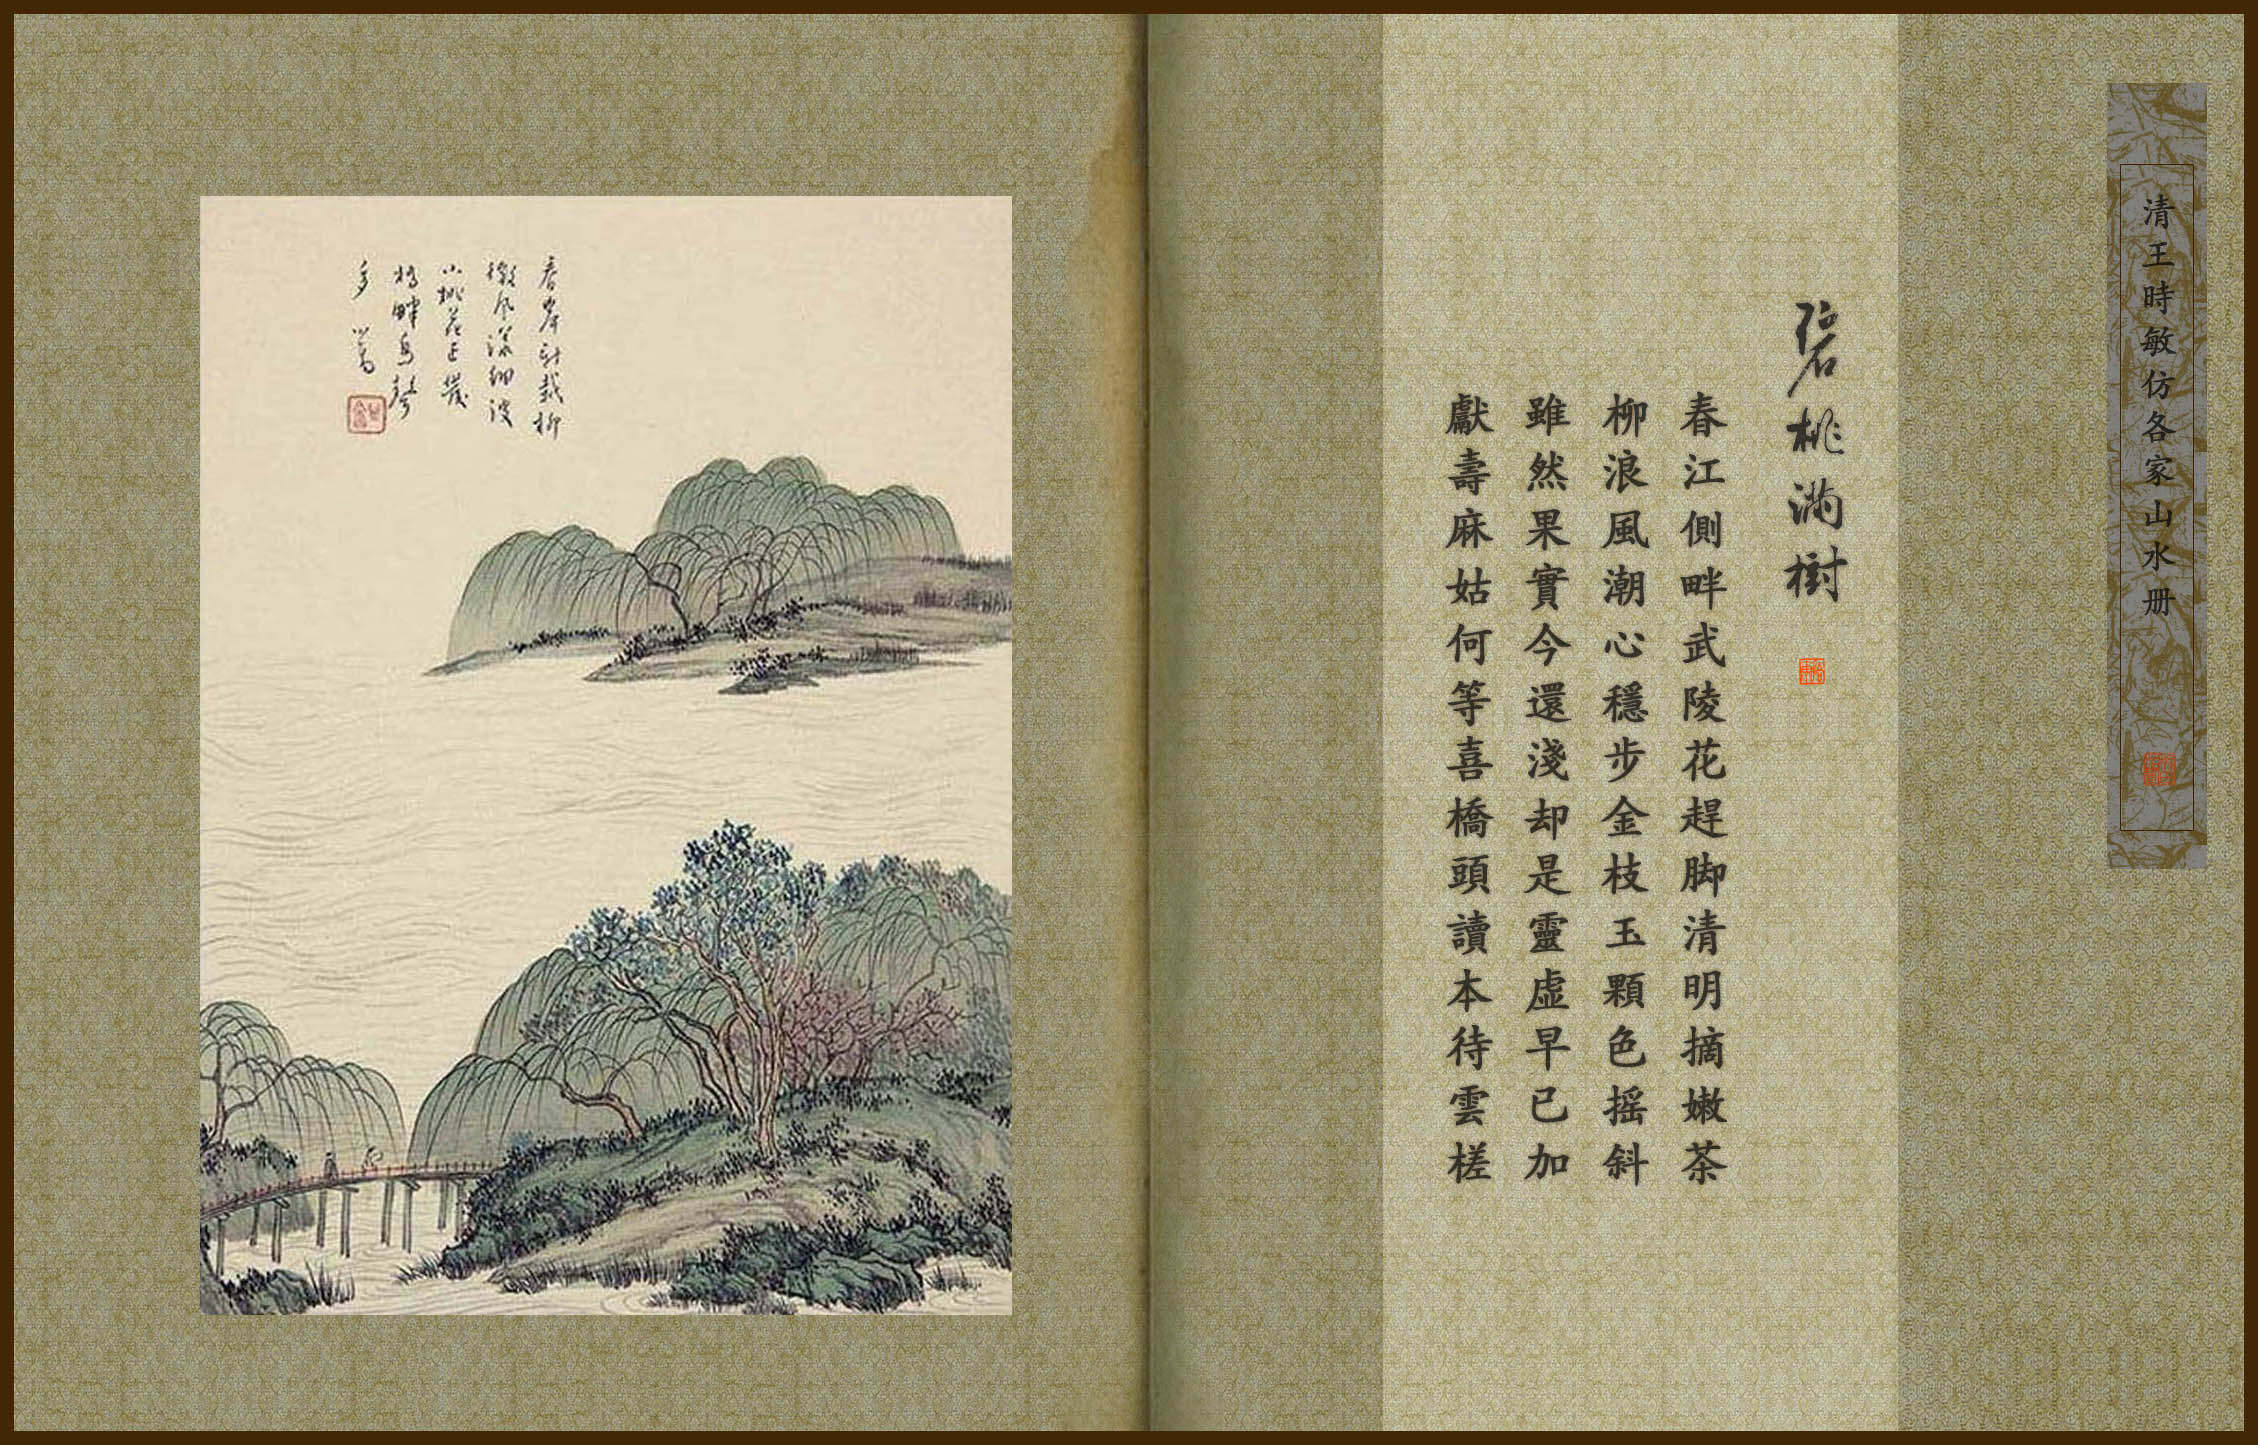 清王時敏仿各家山水册
碧桃滿樹
春江側畔武陵花趕脚清明摘嫩茶
柳浪風潮心穩步金枝玉顆色摇斜
雖然果實今還淺却是靈虚早已加
獻壽麻姑何等喜橋頭讀本待雲槎
春岸新栽柳
微風漾細波
小桃花正發
橋畔鳥聲
多